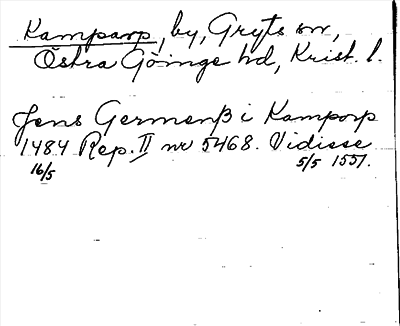 Kamparp, by, Gryts sn,
Östra Göinge hd, Krist. l.
Jens Germenß i Kamporp
1484 Rep. II nr 5468. Vidisse
16/5 5/5 1551.